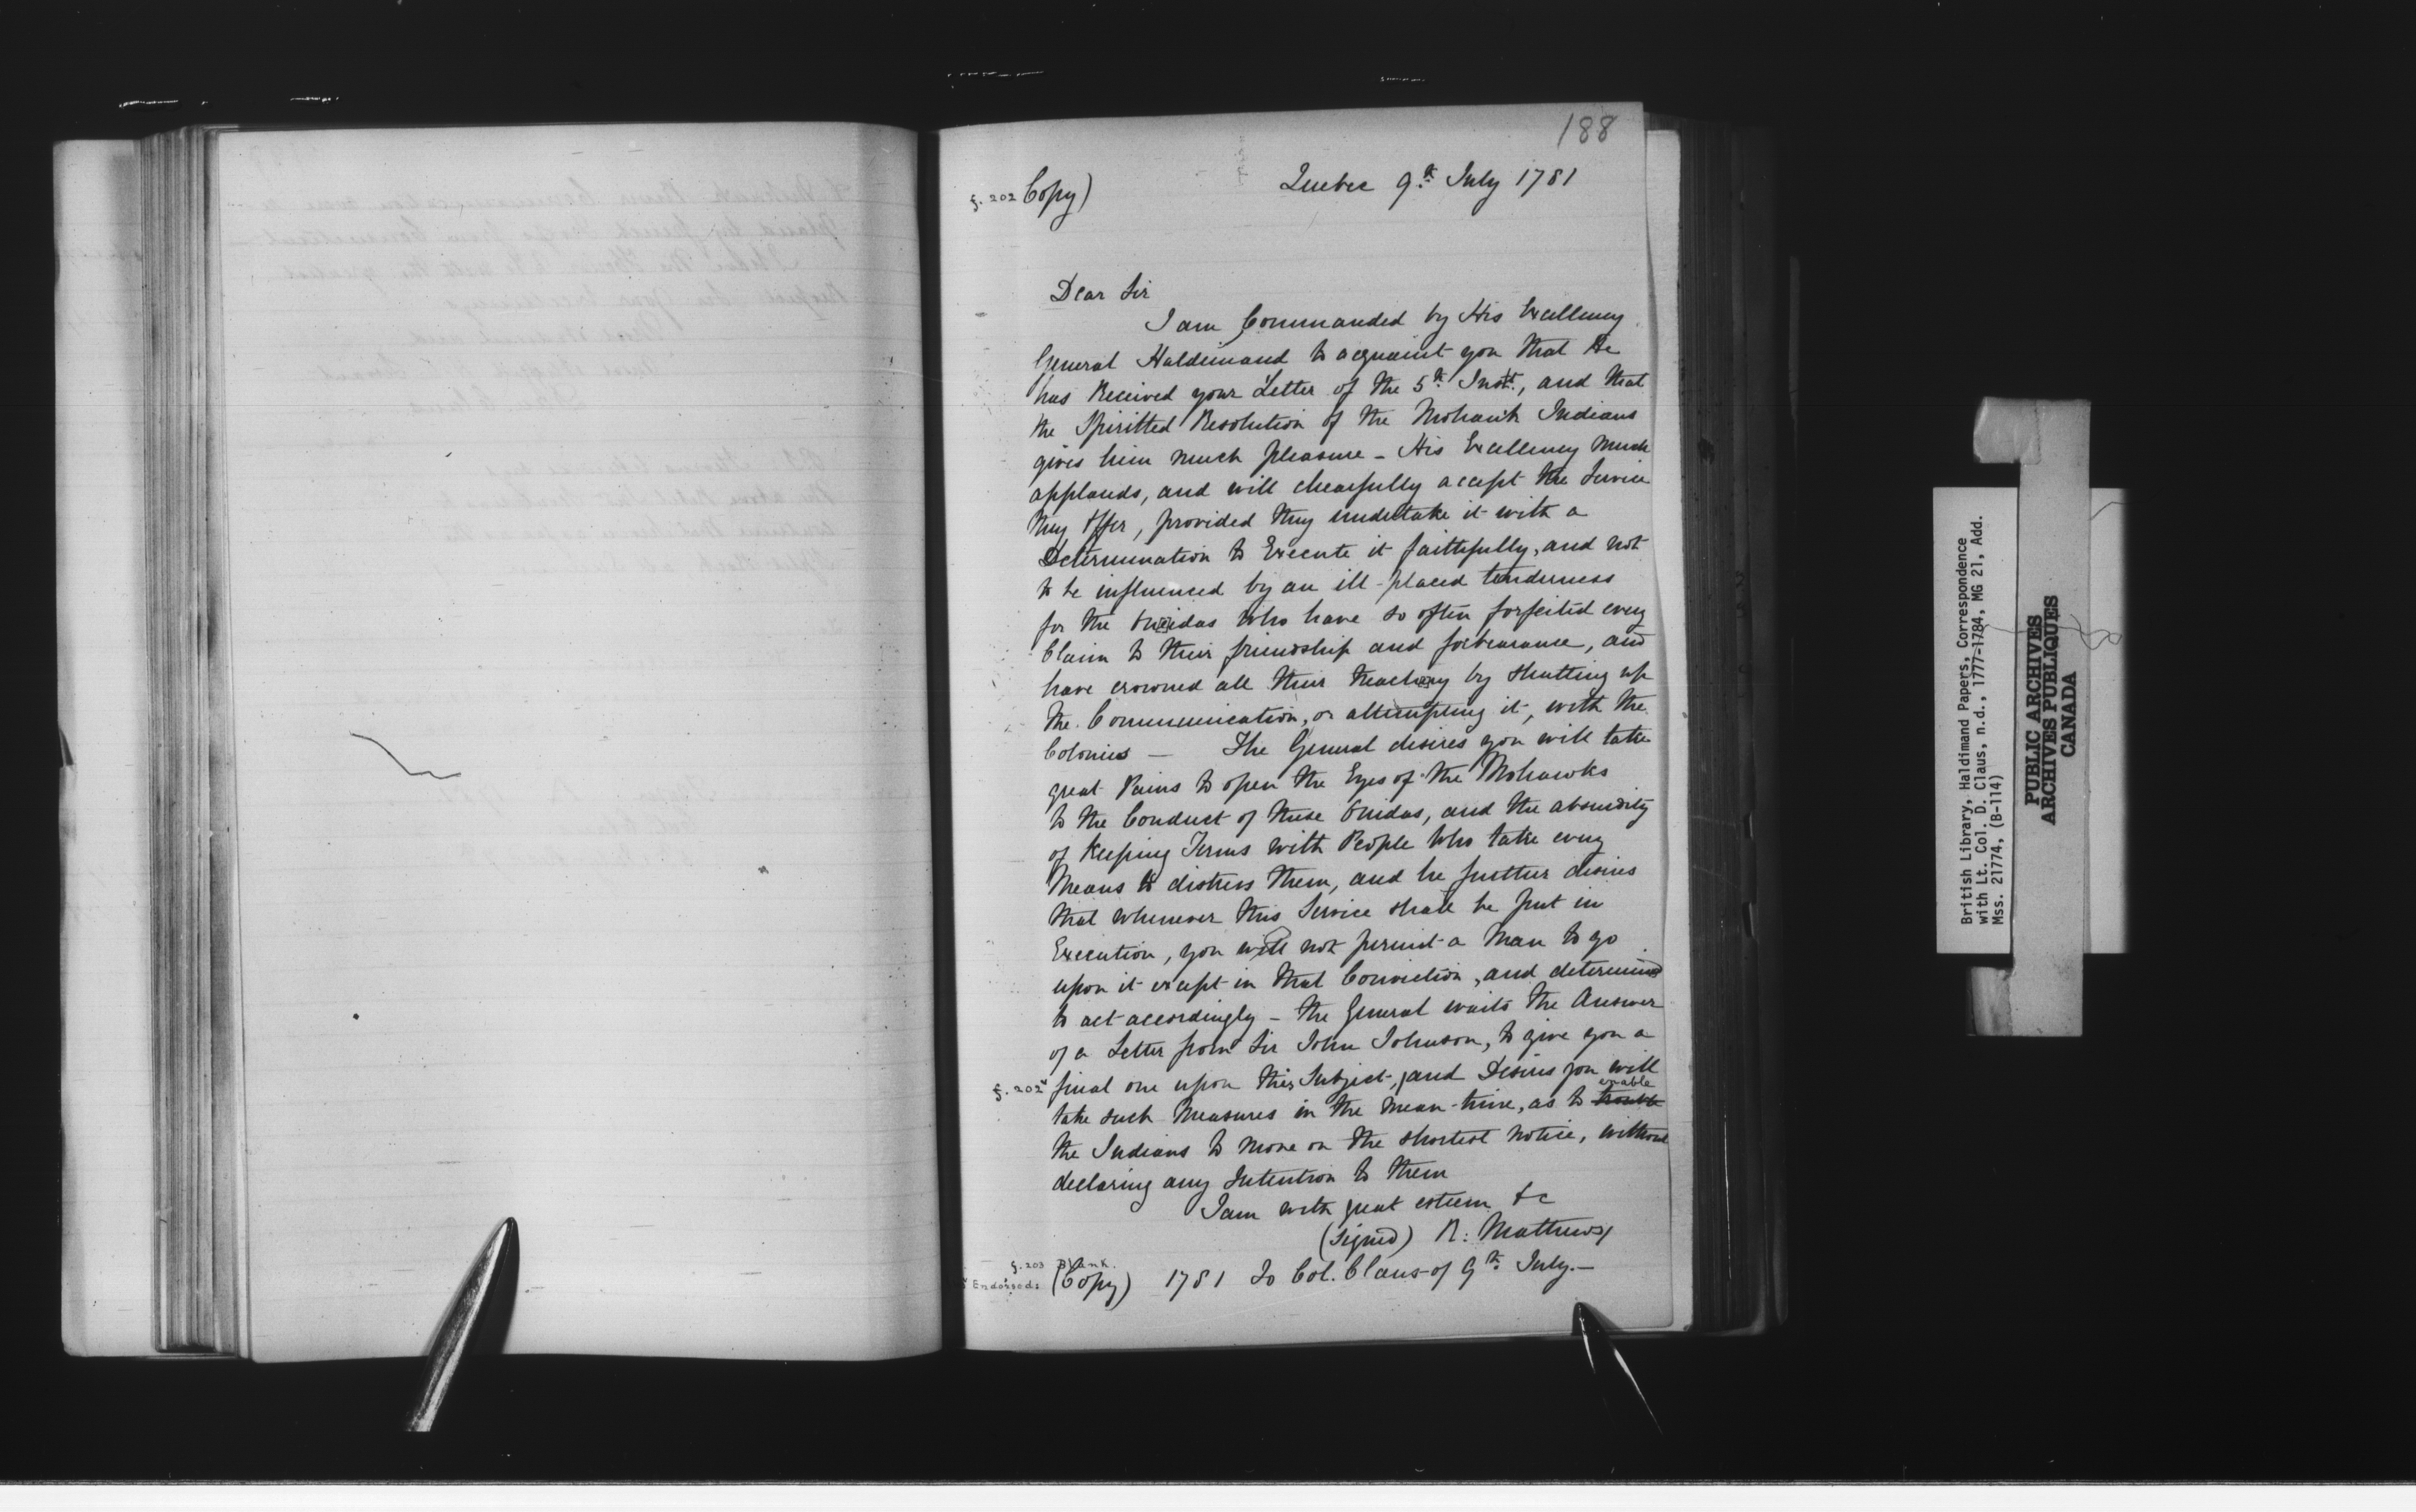 188
f. 202 Copy)
Quebec 9.th July 1781
Dear Sir
I am Commanded by His Excellency
General Haldimand to acquaint you that He
has Received your Letter of the 5.th Inst., and that
the Spiritted Resolution of the Mohawk Indians
gives him much pleasure - His Excellency Much
applauds, and will chearfully accept the Service
they offer, provided they undertake it with a
Determination to Execute it faithfully, and not
to be influenced by an ill-placed tenderness
for the On[e]idas Who have so often forfeited every
Claim to their friendship and forbearance, and
have crowned all their treach[e]ry by shutting up
the Communication, or attempting it, with the
Colonies — The General desires you will take
great Pains to open the Eyes of the Mohawks
to the Conduct of these Onidas, and the absurdity
of Keeping Terms with People Who take every
Means to distress them, and he further desires
that whenever this Service shall be put in
Execution, you will not permit a Man to go
upon it except in that Conviction, and determined
to act accordingly - the General waits the Answer
of a Letter from Sir John Johnson, to give you a
f. 202v final one upon this Subject, and Desires you will
take such Measures in the mean-time, as to trouble enable
the Indians to move on the shortest notice, without
declaring any Intention to them
I am with great esteem &c
(Signed) R: Mathews
f. 203 Blank.
Endorsed: (Copy) 1781 To Col. Claus of 9th July.—
British Library, Haldimand Papers, Correspondence
with Lt. Col. D. Claus, n.d., 1777-1784, MG 21, Add.
Mss. 21774, (B-114)
PUBLIC ARCHIVES
ARCHIVES PUBLIQUES
CANADA